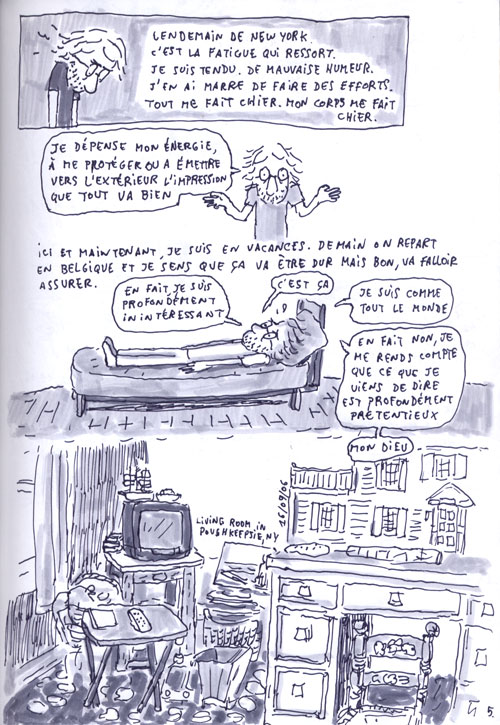 LENDEMAIN DE NEW YORK.
C'EST LA FATIGUE QUI RESSORT.
JE SUIS TENDU. DE MAUVAISE HUMEUR.
J'EN AI MARRE DE FAIRE DES EFFORTS.
TOUT ME FAIT CHIER. MON CORPS ME FAIT
CHIER.
JE DÉPENSE MON ÉNERGIE,
À ME PROTÉGER OU A ÉMETTRE
VERS L'EXTÉRIEUR L'IMPRESSION
QUE TOUT VA BIEN
ICI ET MAINTENANT, JE SUIS EN VACANCES. DEMAIN ON REPART
EN BELGIQUE ET JE SENS QUE ÇA VA ÊTRE DUR MAIS BON, VA FALLOIR
ASSURER.
EN FAIT, JE SUIS
PROFONDÉMENT
ININTÉRESSANT
C'EST ÇA
JE SUIS COMME
TOUT LE MONDE
EN FAIT NON, JE
ME RENDS COMPTE
QUE CE QUE JE
VIENS DE DIRE
EST PROFONDÉMENT
PRÉTENTIEUX
MON DIEU
LIVING ROOM, IN
POUGHKEEPSIE, NY
16/09/06
5